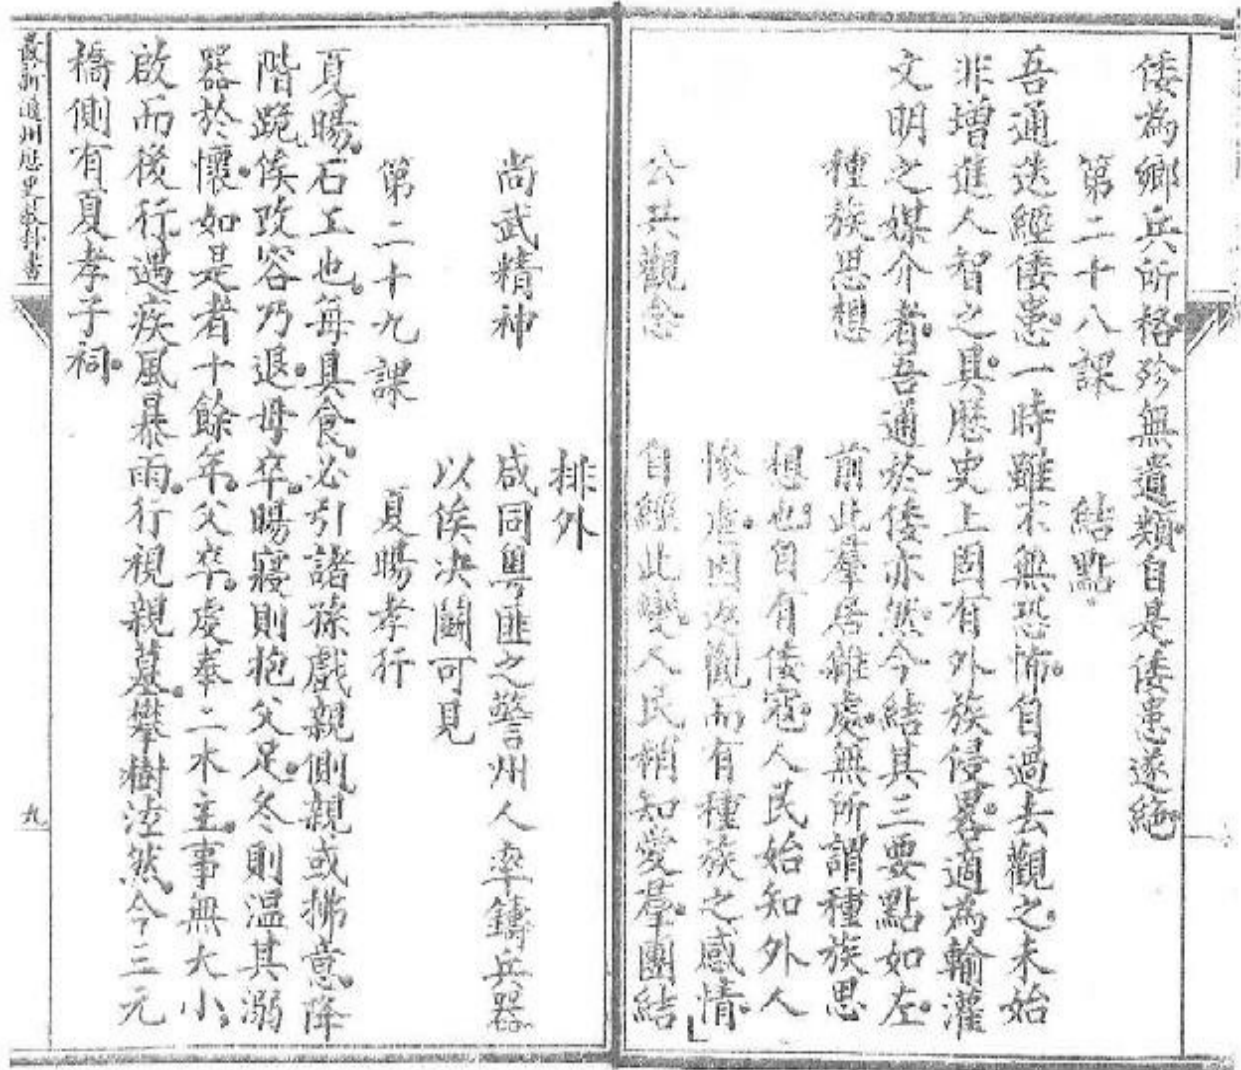 倭為鄉兵所格殄無遺類。自是倭患遂絕
第二十八課　結點。
吾通迭經倭患。一時雖不無恐怖。自過去觀之。未始
非增進人智之具。歷史上固有外族侵畧。適為輸灌
文明之媒介者。吾通於倭亦然。今結其三要點如左。
種族思想　前此羣居雜處。無所謂種族思
想也。自有倭寇。人民始知外人
慘虐。因返觀而有種族之感情。
公共觀念　自經此變。人民稍知愛羣。團結
排外
尚武精神　咸同粵匪之警州人率鑄兵器
以俟决鬬可見
第二十九課　夏暘孝行
夏暘。石工也。每具食。必引諸孫戲親側。親或拂意。降
階跪。俟改容乃退。母卒。暘寢則抱父足。冬則温其溺
器於懷。如是者十餘年。父卒。虔奉二木主。事無大小。
啟而後行。遇疾風暴雨。行視親墓。攀樹泣然。今三元
橋側有夏孝子祠。
最新通州歷史教科書
九